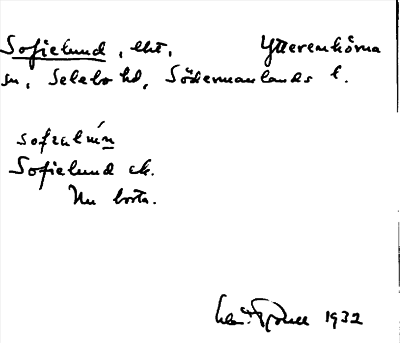 Sofielund, lht, Ytterenhörna
sn, Selebo hd, Södermanlands l.
sofialún
Sofielund ek.
Nu borta.
1932